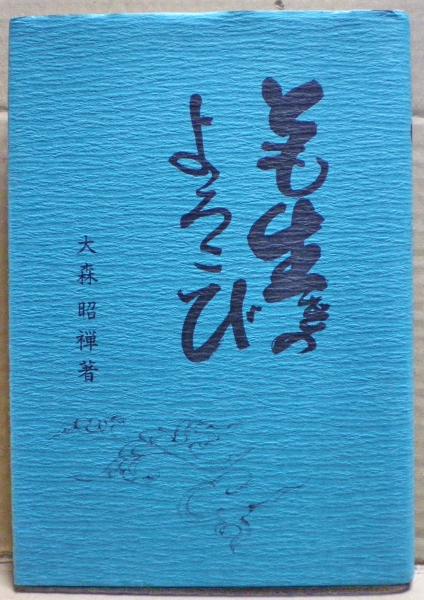 とも生きの
よろこび
大森昭禅著